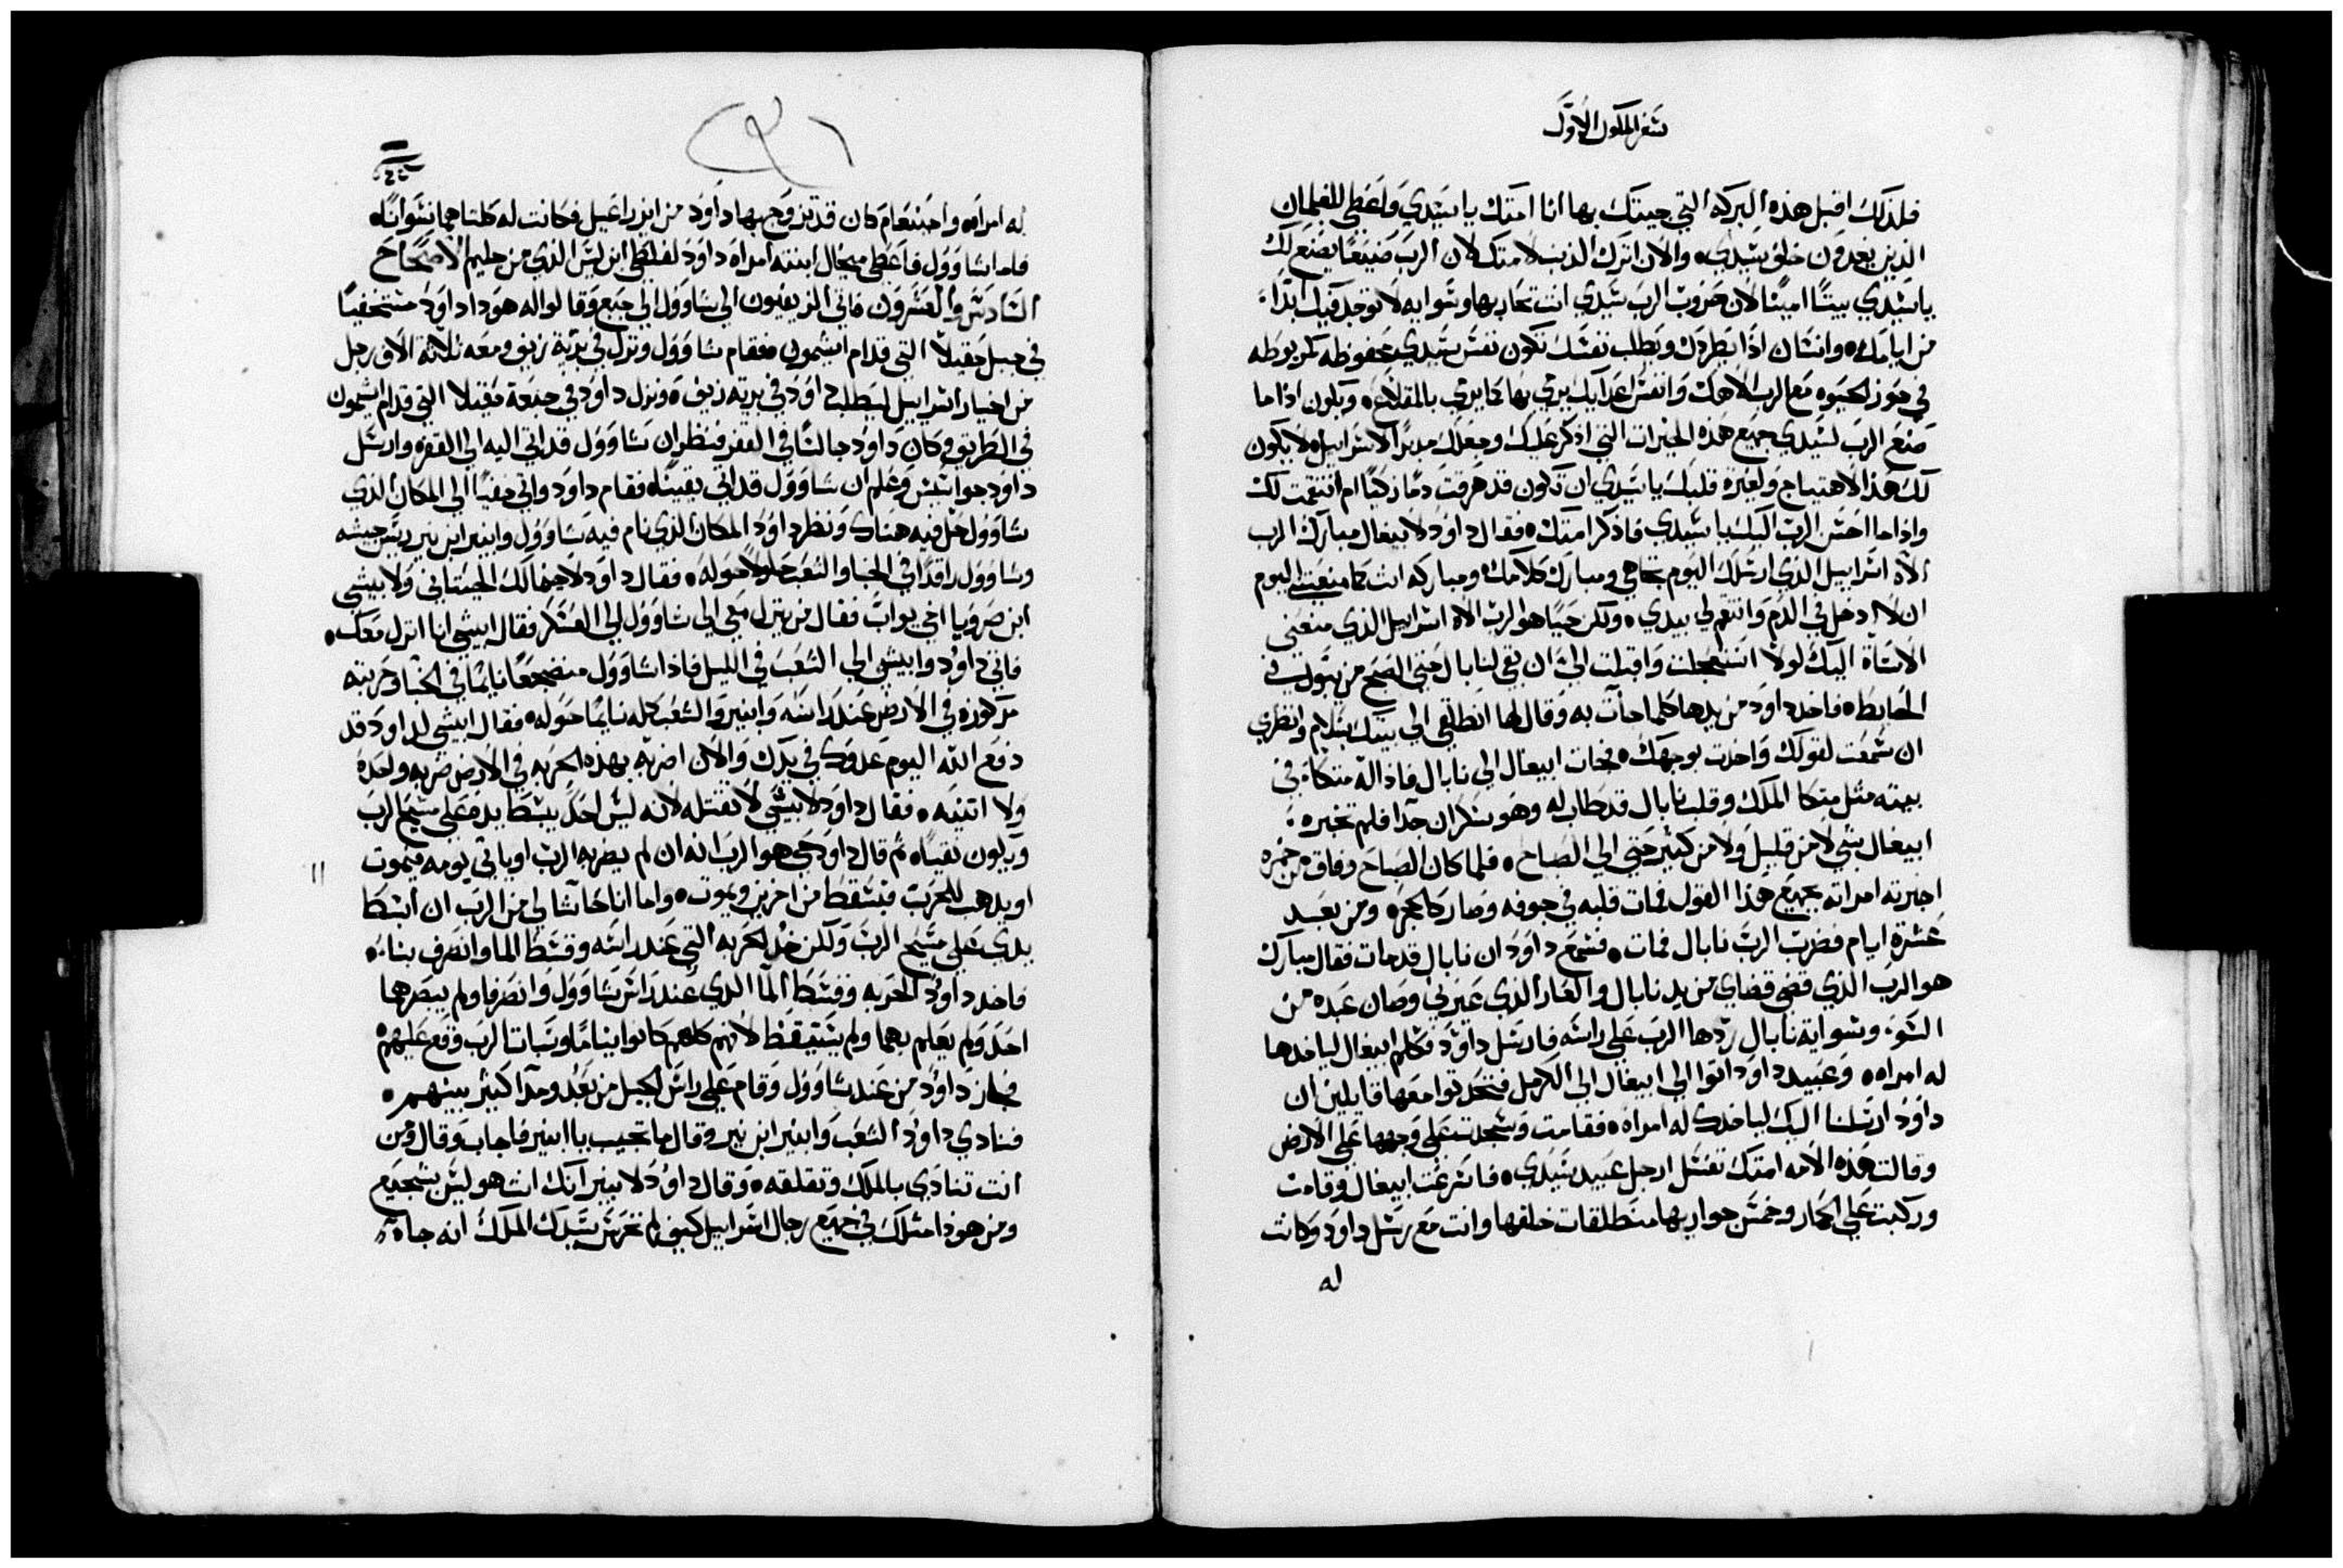 سفر الملوك الاول
فلذلك اقبل هذه البركه التي جيتك بها انا امتك يا سيدي واعطي للغلمان
الذين يعدون خلف سيدي، والان اترك الذنب لامتك لان الرب صنيعًا يصنع لك
يا سيدي بيتًا امينًا لان حروب الرب سيدي انت تحاربها وسوايه لا توجد فيك ابدًا
من ايامك، وانسان اذا يطردك ويطلب نفسك تكون نفس سيدي محفوظه كمربوطه
في حوز الحيوه مع الرب الاهك وانفس اعدايك يرمي بها كما يرمي بالمقلاع، ويكون اذا ما
صنع الرب لسيدي جميع هذه الخيرات التي اذكر عليك وجعلك مدبرًا لاسراييل، لا يكون
لك هذا الاهتياج ولعثرة قلبك يا سيدي ان تكون قد هرقت دمًا زكيًا ام انتقمت لك
واذا ما احسن الرب اليك يا سيدي فاذكر امتك، فقال داود لابيغال مبارك الرب
الاه اسراييل الذي ارسلك اليوم تجاهي ومبارك كلامك ومباركه انت كما منعتني اليوم
ان لا ادخل في الدم وانتقم لي بيدي، ولكن حيًا هو الرب الاه اسراييل الذي منعني
الاساة اليك لولا استعجلت واقبلت الي ان بقي لنابال حتي الصبح من يبول في
الحايط، فاخد داود من يدها كلما جات به وقال لها انطلقي الي بيتك بسلام وانظري
ان سمعت لقولك واخدت بوجهك، فجات ابيغال الي نابال فاذا له متكاة في
بيته مثل متكا الملك وقلب نابال قد طاب له وهو سكران جدًا فلم تخبره
ابيغال بشي لا من قليل ولا من كثير حتي الي الصباح، فلما كان الصباح وفاق من خمره
اخبرته امراته بجميع هذا القول فمات قلبه في جوفه وصار كالحجر، ومن بعد
عشرة ايام فضرب الرب نابال فمات، فسمع داود ان نابال قد مات فقال مبارك
هو الرب الذي قضي قضاي من يد نابال والعار الذي عيرني وصان عبده من
السوء وسواية نابال ردها الرب علي راسه فارسل داود فكلم ابيغال لياخدها
له امراه، وعبيد داود اتوا الي ابيغال الي الكرمل فتحدتوا معها قايلين ان
داود ارسلنا اليك لياخدك له امراه، فقامت وسجدت علي وجهها علي الارض
وقالت هذه الامه امتك تغسل ارجل عبيد سيدي، فاسرعت ابيغال وقامت
وركبت علي الحمار وخمس جواريها منطلقات خلفها واتت مع رسل داود وكانت
له
له امراه، واحينعام كان قد تزوج بها داود من ايزراعيل فكانت له كلتاهما نسوانًا،
فاما شاوول فاعطي ميخال ابنته امراة داود لفلطي ابن ليس الذي من جليم، الاصحاح
السادس والعشرون فاتي الزيفيون الي شاوول الي جبع وقالوا له هوذا داود مستخفيًا
في جبل حقيلا التي قدام ايشمون، فقام شاوول ونزل في برية زيف ومعه ثلاثة الاف رجل
من اخيار اسراييل ليطلب داود في برية زيف، ونزل داود في جبعة حقيلا التي قدام ايشمون
في الطريق وكان داود جالسًا في القفر فنظر ان شاوول قد اتي اليه الي القفر، وارسل
داود جواسيس وعلم ان شاوول قد اتي يقينًا، فقام داود واتي خفيًا الي المكان الذي
شاوول حل فيه هناك ونظر داود المكان الذي نام فيه شاوول وابنير ابن نير رييس جيشه
وشاوول راقدًا في الخبا والشعب حلولًا حوله، فقال داود لاحيمالك الحيتاني ولابيشي
ابن صرويا اخي يواب فقال من ينزل معي الي شاوول الي العسكر فقال ابيشي انا انزل معك،
فاتي داود وابيشي الي الشعب في الليل فاذا شاوول منضجعًا نايمًا في الخبا وحربته
مركوزه في الارض عند راسه وابنير والشعب كله نيامًا حوله، فقال ابيشي لداود قد
دفع الله اليوم عدوك في يدك والان اضربه بهذه الحربه في الارض ضربه واحدة
ولا اتنيه، فقال داود لابيشي لا تقتله لانه ليس احد يبسط يده علي مسيح الرب
ويكون نقيًا، ثم قال داود حي هو الرب انه ان لم يضربه الرب او ياتي يومه فيموت
او يدهب للحرب فيسقط من اخرين ويموت، واما انا حاشا لي من الرب ان ابسط
يدي علي مسيح الرب ولكن خذ الحربه التي عند راسه وقسط الما وانصرف بنا،
فاخد داود الحربه وقسط الما الذي عند راس شاوول وانصرفا ولم يبصرهما
احد ولم يعلم بهما ولم يستيقظ لانهم كلهم كانوا نيامًا وسبات الرب وقع عليهم
فجاز داود من عند شاوول وقام علي راس الجبل من بعد ومدا كثير بينهم،
فنادي داود الشعب وابنير ابن نير وقال ما تجيب يا ابنير فاجاب وقال ومن
انت تنادي بالملك وتقلقه، وقال داود لابنير انك انت هو ليس بشجيع
ومن هوذا مثلك في جميع رجال اسراييل كيف لم تحرس سيدك الملك انه جاه